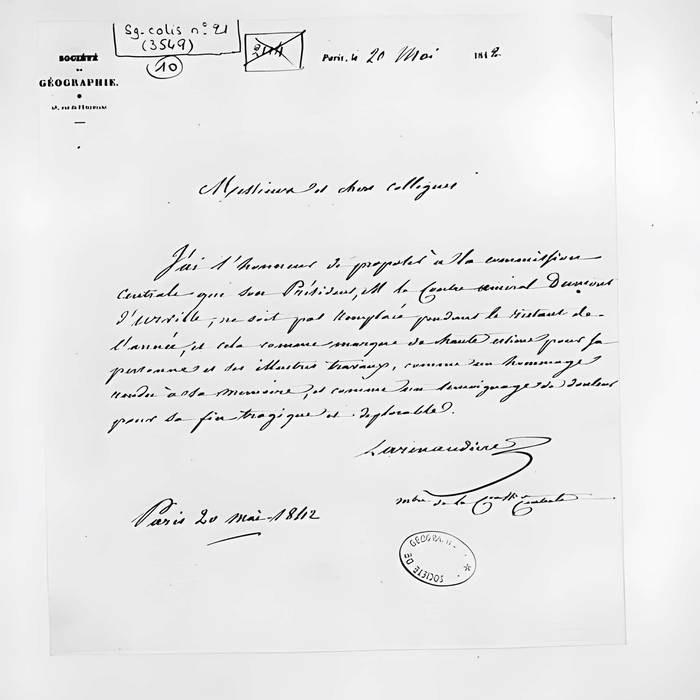 Sg-colis n: 21
(3549)
10
SOCIÉTÉ
DE
GÉOGRAPHIE.
Paris, le 20 Mai 1842
Messieurs et chers collegues
J'ai l'honneur de proposer à la commission
centrale que son Président, M le Contre amiral Dumont
d'Urville, ne soit pas remplacé pendant le restant de
l'année, et cela comme marque de haute estime pour sa
personne et ses illustres travaux, comme un hommage
rendu à sa memoire, et comme un temoignage de douleur
pour sa fin tragique et deplorable.
Larenaudiere
mbre de la Centrale
Paris 20 mai 1842
SOCIETE DE GEOGRA